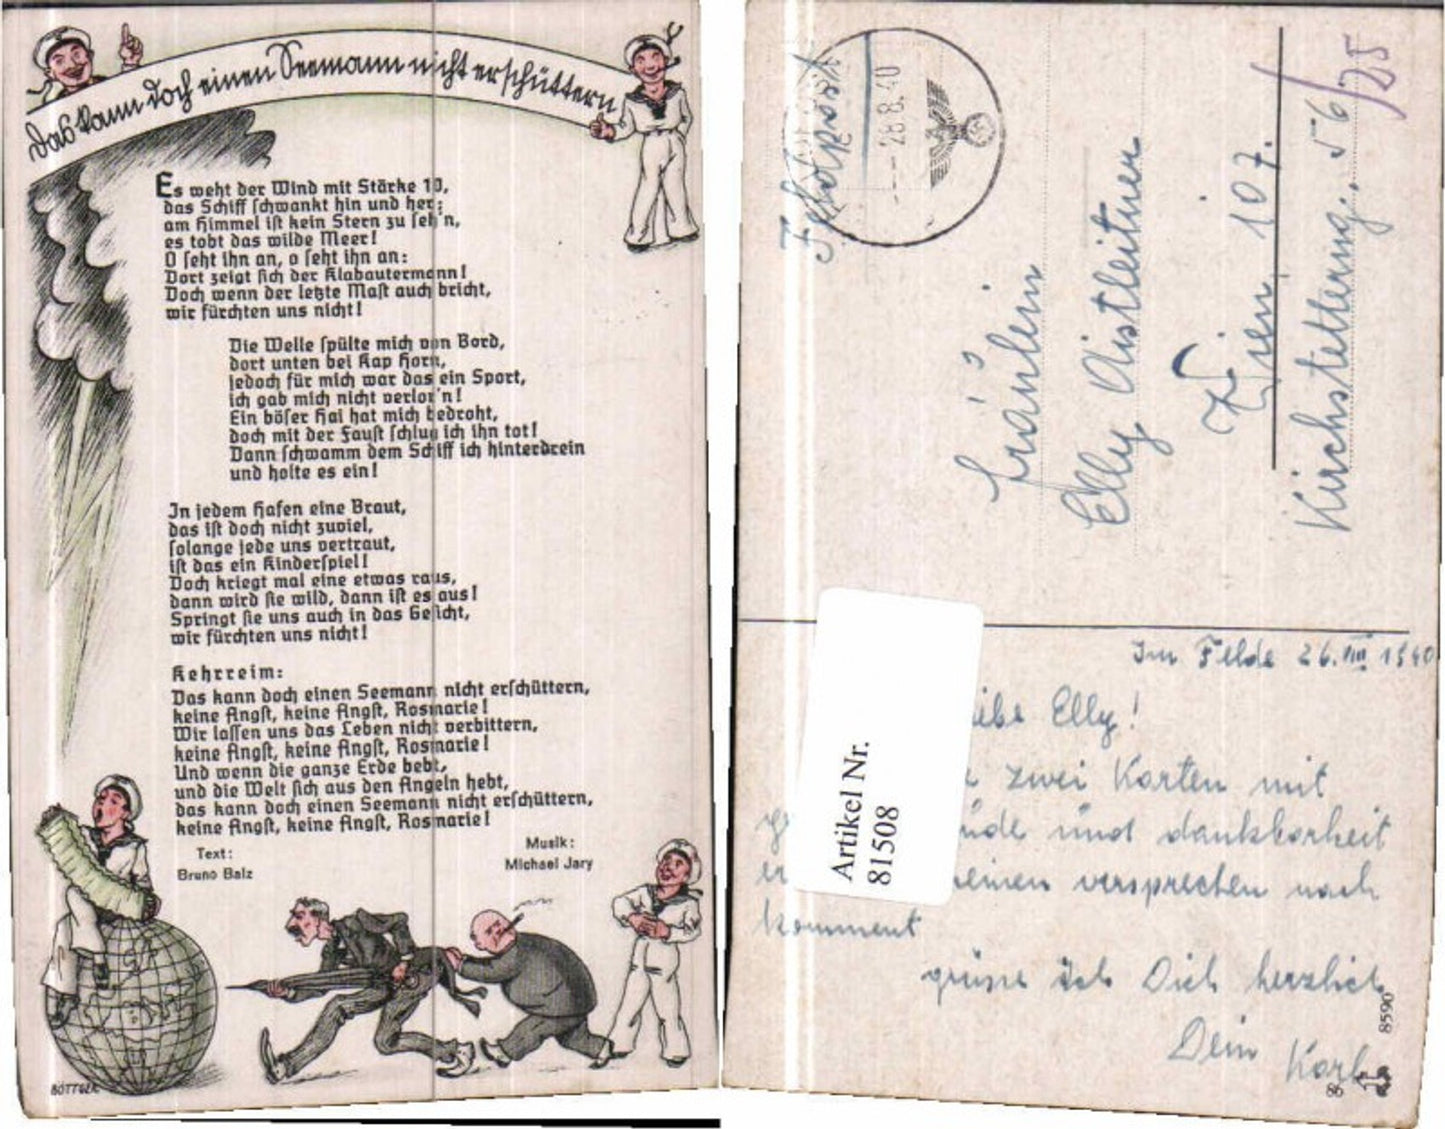 Das kann doch einen Seemann nicht erschüttern
Es weht der Wind mit Stärke 10,
das Schiff schwankt hin und her;
am Himmel ist kein Stern zu seh'n,
es tobt das wilde Meer!
O seht ihn an, o seht ihn an:
Dort zeigt sich der Klabautermann!
Doch wenn der letzte Mast auch bricht,
wir fürchten uns nicht!
Die Welle spülte mich von Bord,
dort unten bei Kap Horn,
jedoch für mich war das ein Sport,
ich gab mich nicht verlor'n!
Ein böser Hai hat mich bedroht,
doch mit der Faust schlug ich ihn tot!
Dann schwamm dem Schiff ich hinterdrein
und holte es ein!
In jedem Hafen eine Braut,
das ist doch nicht zuviel,
solange jede uns vertraut,
ist das ein Kinderspiel!
Doch kriegt mal eine etwas raus,
dann wird sie wild, dann ist es aus!
Springt sie uns auch in das Gesicht,
wir fürchten uns nicht!
Kehrreim:
Das kann doch einen Seemann nicht erschüttern,
keine Angst, keine Angst, Rosmarie!
Wir lassen uns das Leben nicht verbittern,
keine Angst, keine Angst, Rosmarie!
Und wenn die ganze Erde bebt,
und die Welt sich aus den Angeln hebt,
das kann doch einen Seemann nicht erschüttern,
keine Angst, keine Angst, Rosmarie!
Text:
Bruno Balz
Musik:
Michael Jary
BÖTTGER
Feldpost
28.8.40
Fräulein
Elly Aistleitner
Wien 107.
Kirchstetterng. 56/25
Im Felde 26.VIII 1940
Elly!
zwei Karten mit
und dankbarkeit
versprechen nach
kommend
grüsse ich Dich herzlich
Dein Karl
Artikel Nr.
81508
8590